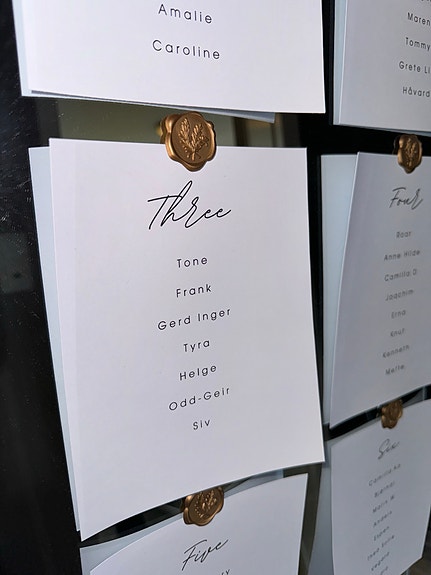 Amalie
Caroline
Maren
Tommy
Grete Li
Håvard
Three
Tone
Frank
Gerd Inger
Tyra
Helge
Odd-Geir
Siv
Four
Roar
Anne Hilde
Camilla D
Joachim
Erna
Knut
Kenneth
Mette
Five
Six